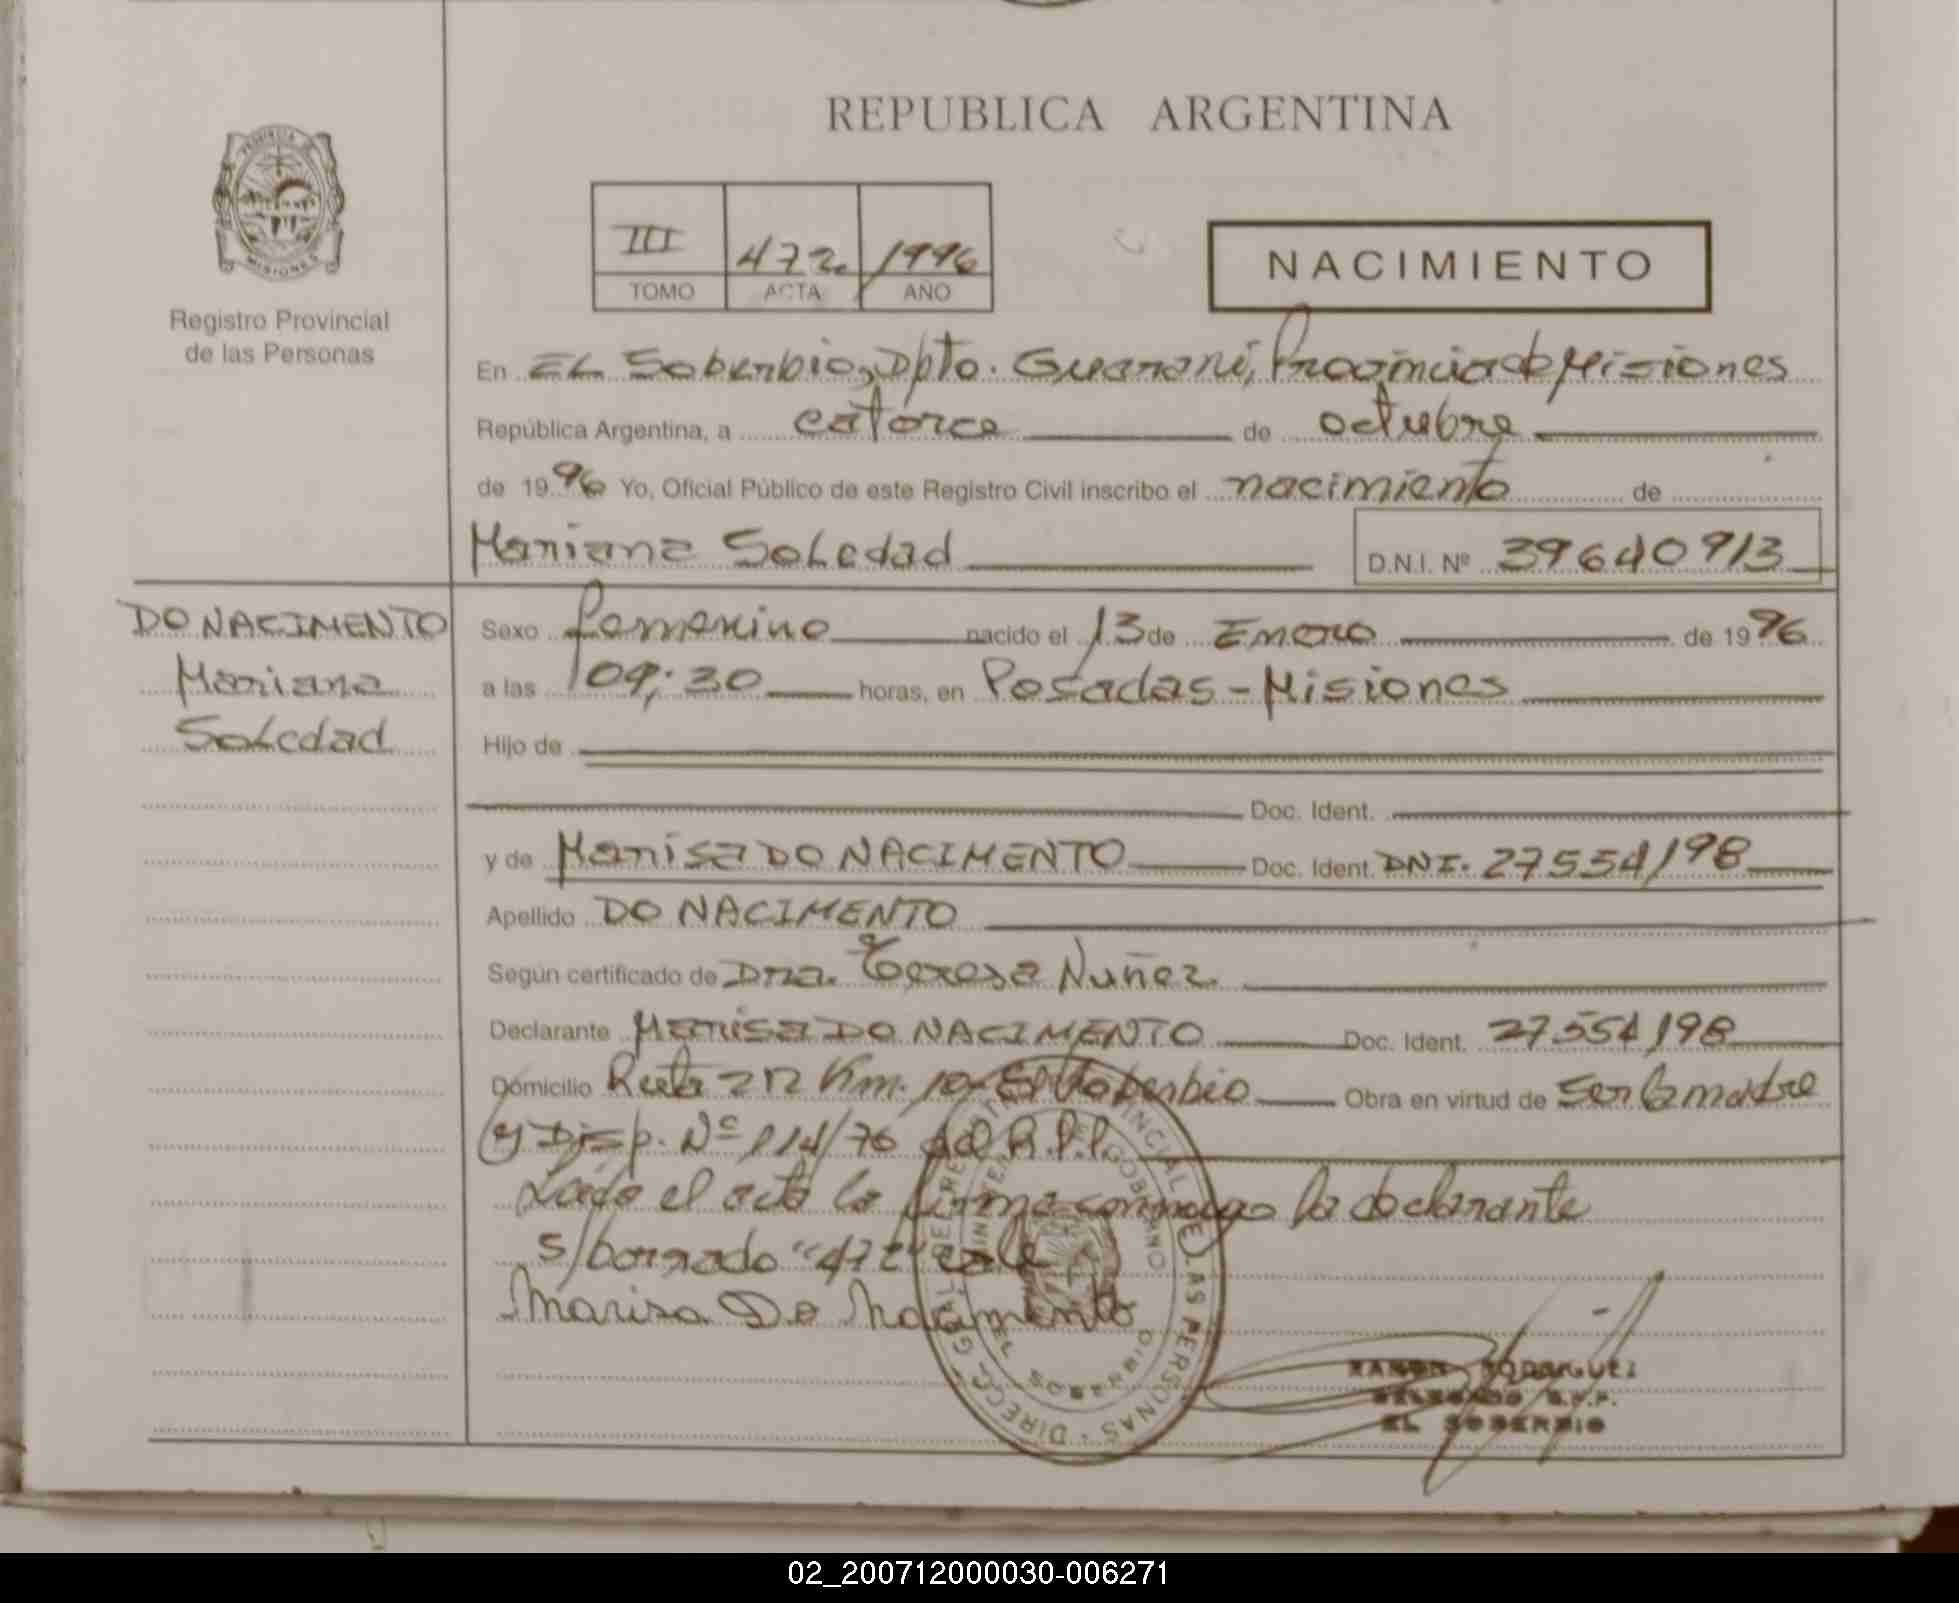 REPUBLICA ARGENTINA
PROVINCIA DE
MISIONES
Registro Provincial
de las Personas
III 472 1996
TOMO ACTA AÑO
NACIMIENTO
En EL Soberbio, Dpto. Guarani, Provincia de Misiones
República Argentina, a catorce de octubre
de 1996 Yo, Oficial Público de este Registro Civil inscribo el nacimiento de
Mariana Soledad D.N.I. Nº 39640913
DO NACIMENTO
Mariana
Soledad
Sexo femenino nacido el 13 de Enero de 1996
a las 09:30 horas, en Posadas - Misiones
Hijo de
Doc. Ident.
y de Marisa DO NACIMENTO Doc. Ident. DNI. 27554198
Apellido DO NACIMENTO
Según certificado de Dra. Teresa Nuñez
Declarante Marisa DO NACIMENTO Doc. Ident. 27554198
Domicilio Ruta 212 Km. 10 - El Soberbio Obra en virtud de ser la madre
y Disp. Nº 114/76 del R.P.P.
Leida el acta la firma conmigo la declarante
s/borrado "472" vale
Marisa Do Nacimento
RAMON RODRIGUEZ
DELEGADO R.P.P.
EL SOBERBIO
02_200712000030-006271